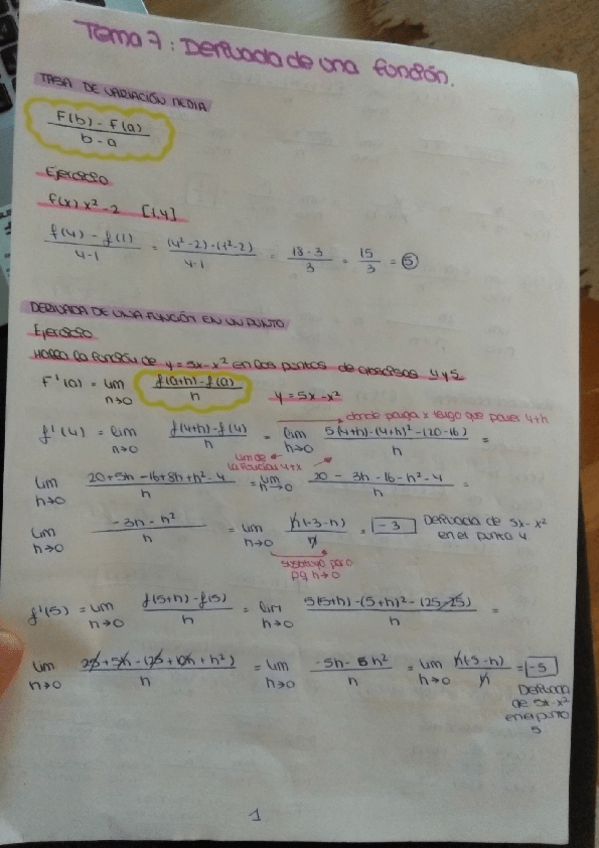 Tema 7: Derivada de una función.
TASA DE VARIACIÓN MEDIA
F(b) - F(a) / b - a
Ejercicio
f(x) x² - 2 [1,4]
f(4) - f(1) / 4-1 = (4²-2)-(1²-2) / 4-1 = 13-3 / 3 = 15 / 3 = 5
DERIVADA DE UNA FUNCIÓN EN UN PUNTO
Ejercicio
la función de y = 5x - x² en los puntos de abscisas 4 y 5
F'(a) = lim h→0 f(a+h) - f(a) / h y = 5x - x²
donde ponga x tengo que poner 4+h
f'(4) = lim h→0 f(4+h) - f(4) / h = lim h→0 5(4+h) - (4+h)² - (20-16) / h =
lim h→0 20+5h-16+8h+h²-4 / h = lim h→0 20 - 3h - 16 - h² - 4 / h =
lim h→0 -3h - h² / h = lim h→0 h(-3-h) / h = -3 Derivada de 5x-x² en el punto 4
sustituyo para h→0
f'(5) = lim h→0 f(5+h) - f(5) / h = lim h→0 5(5+h) - (5+h)² - (25-25) / h =
lim h→0 25+5h-(25+10h+h²) / h = lim h→0 -5h - h² / h = lim h→0 h(5-h) / h = -5
Derivada
de 5x-x²
en el punto
5
1